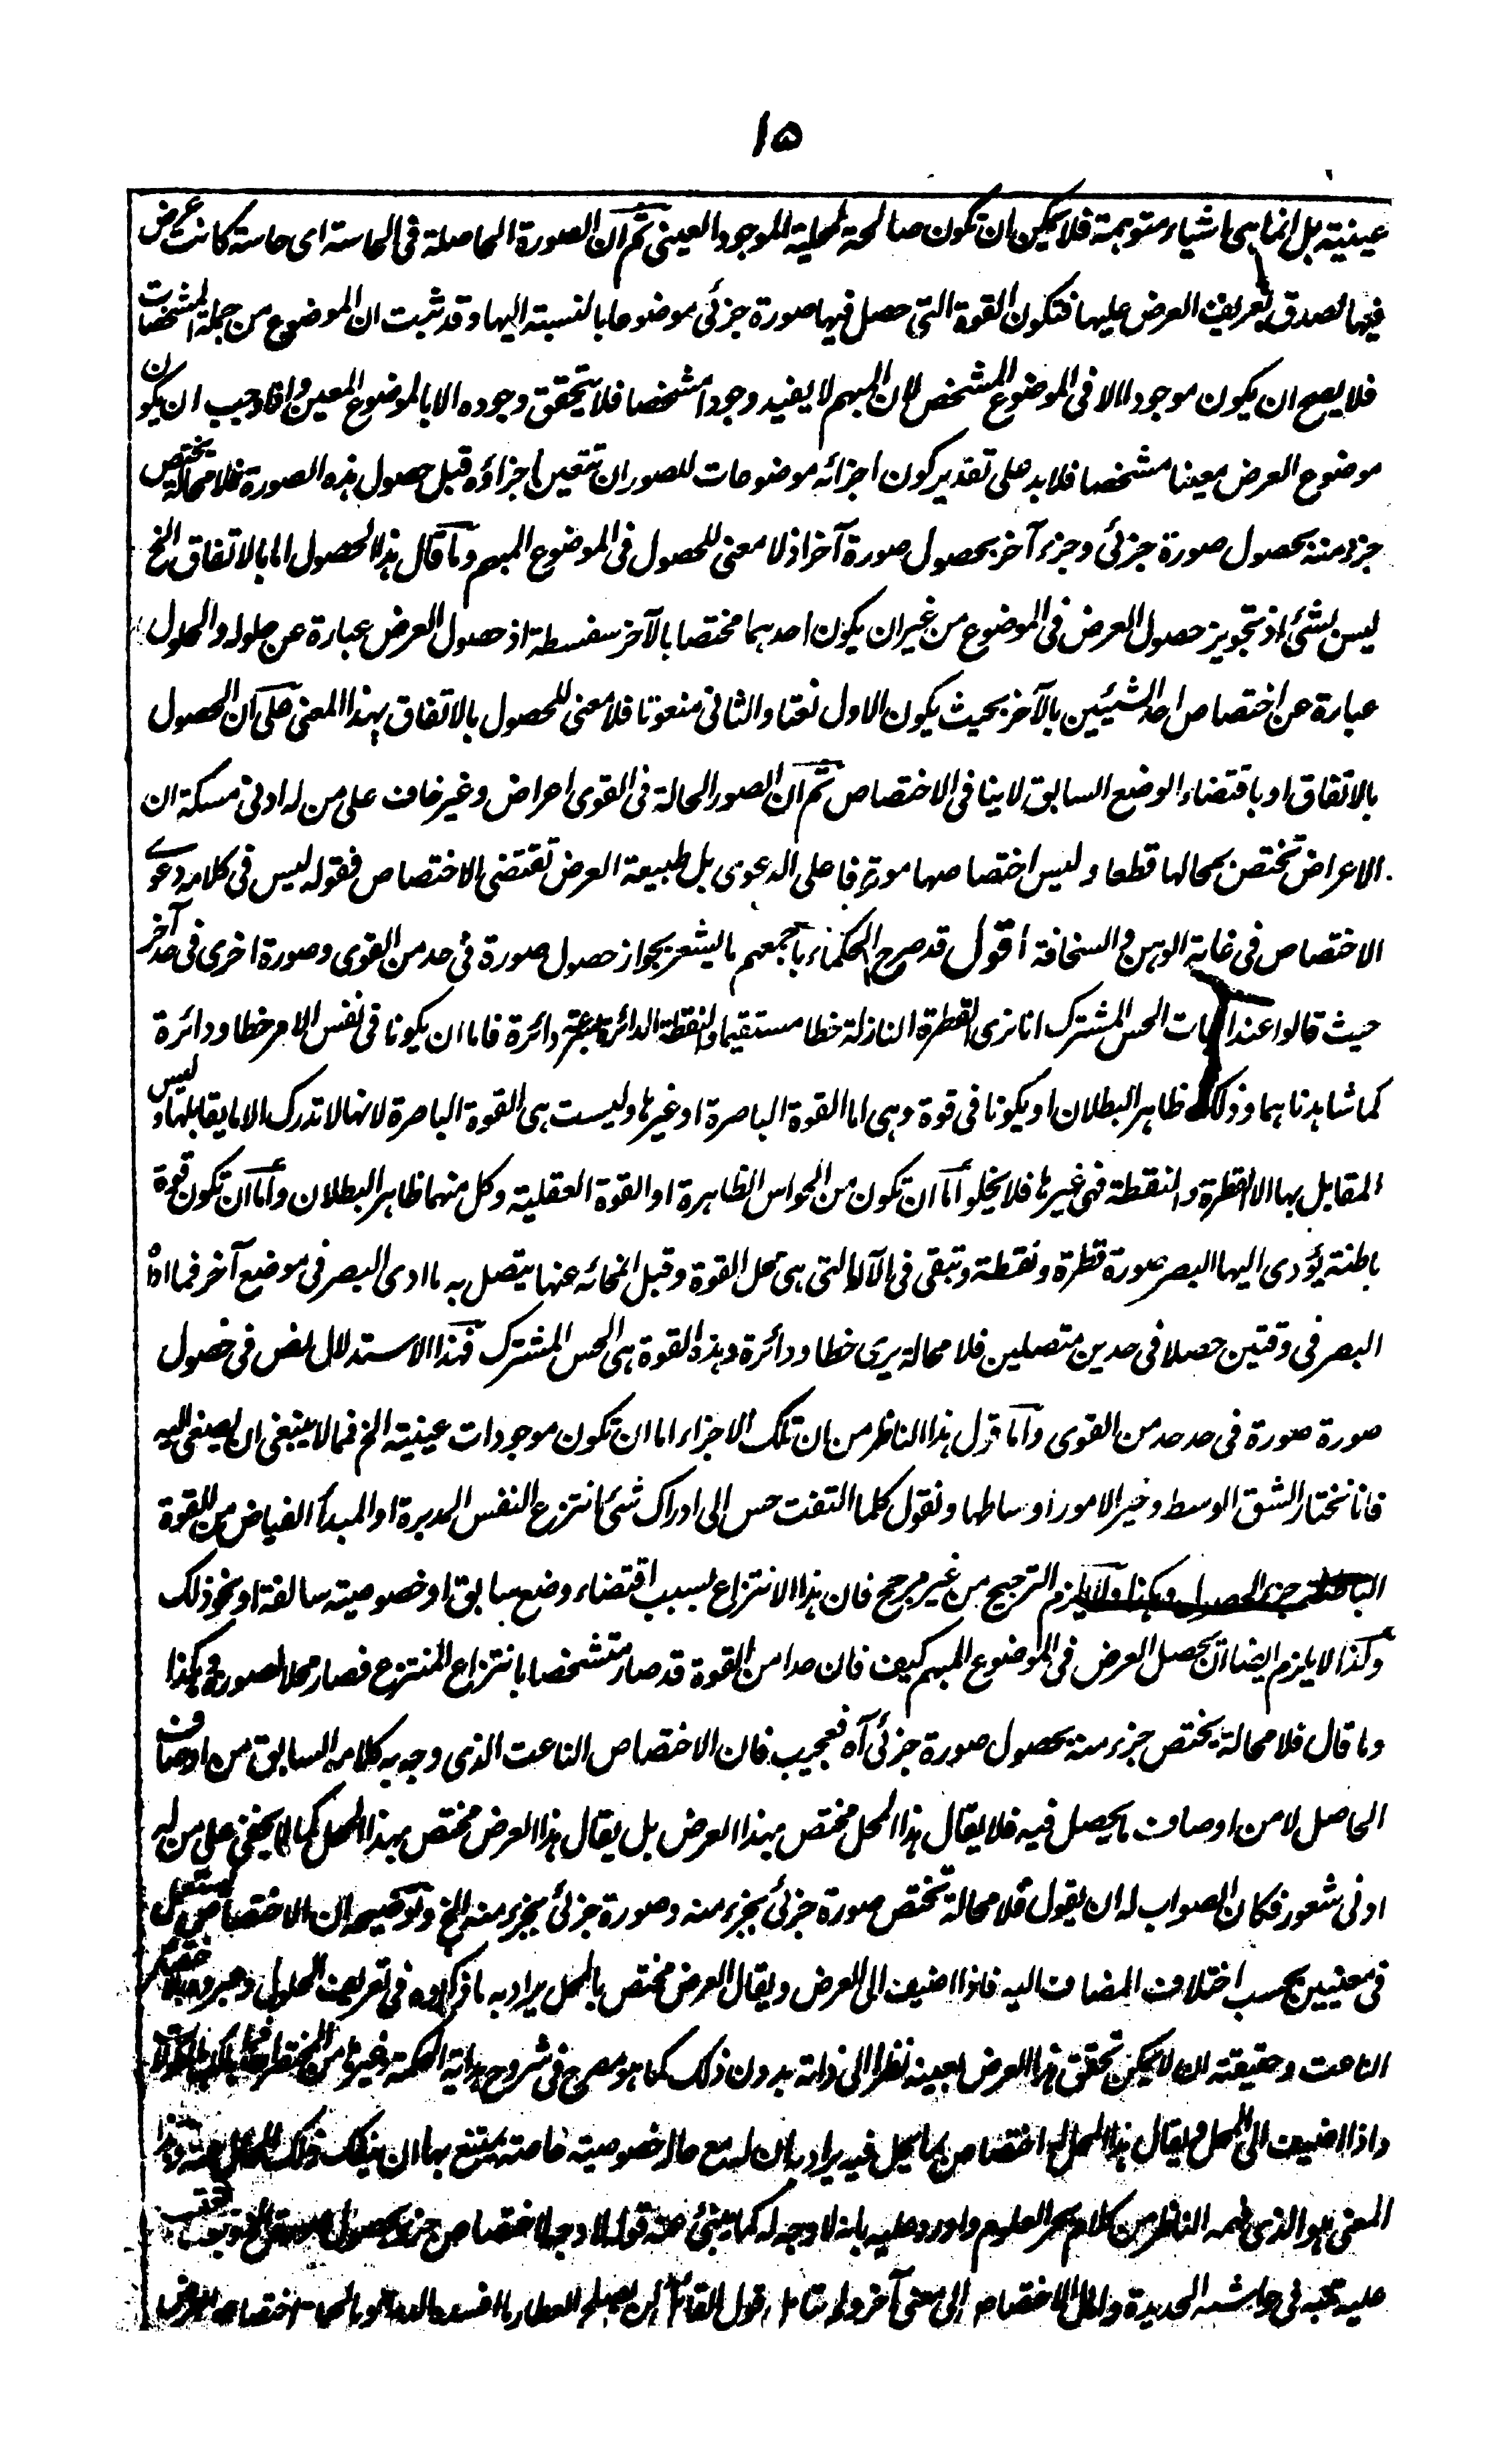 ١٥
عينية بل انما هى اشياء متوهمة فلا يمكن ان تكون صالحة لمحلية الموجود العينى ثم ان الصورة الحاصلة فى الحاسة اى حاسة كانت عرض
فيها لصدق تعريف العرض عليها فتكون القوة التى حصل فيها صورة جزئى موضوعا بالنسبة اليها وقد ثبت ان الموضوع من جملة المشخصات
فلا يصح ان يكون موجودا الا فى الموضوع المشخص لان المبهم لا يفيد وجودا مشخصا فلا يتحقق وجوده الا بالموضوع المعين واذا وجب ان يكون
موضوع العرض معينا مشخصا فلا بد على تقدير كون اجزائه موضوعات للصور ان تتعين اجزاؤه قبل حصول هذه الصورة فلا محالة يختص
جزء منه بحصول صورة جزئى وجزء آخر بحصول صورة آخر اذ لا معنى للحصول فى الموضوع المبهم وما قال هذا الحصول اما بالاتفاق الخ
ليس بشئ اذ تجويز حصول العرض فى الموضوع من غير ان يكون احدهما مختصا بالآخر سفسطة اذ حصول العرض عبارة عن حلوله والحلول
عبارة عن اختصاص احد الشيئين بالآخر بحيث يكون الاول نعتا والثانى منعوتا فلا معنى للحصول بالاتفاق بهذا المعنى على ان الحصول
بالاتفاق او باقتضاء الوضع السابق لا ينافى الاختصاص ثم ان الصور الحالة فى القوى اعراض وغير خاف على من له ادنى مسكة ان
الاعراض تختص بمحالها قطعا وليس اختصاصها موقوفا على الدعوى بل طبيعة العرض تقتضى الاختصاص فقوله ليس فى كلامه دعوے
الاختصاص فى غاية الوهن والسخافة اقول قد صرح الحكماء باجمعهم ما يشعر بجواز حصول صورة فى حد من القوى وصورة اخرى فى حد آخر
حيث قالوا عند اثبات الحس المشترك انا نرى القطرة النازلة خطا مستقيما والنقطة الدائرة بسرعة دائرة فاما ان يكونا فى نفس الامر خطا ودائرة
كما شاهدناهما وذلك ظاهر البطلان او يكونا فى قوة وهى اما القوة الباصرة او غيرها وليست هى القوة الباصرة لانها لا تدرك الا ما يقابلها وليس
المقابل بها الا القطرة والنقطة فهى غيرها فلا يخلو اما ان تكون من الحواس الظاهرة او القوة العقلية وكل منهما ظاهر البطلان واما ان تكون قوة
باطنة يؤدى اليها البصر صورة قطرة ونقطة وتبقى فى الآلة التى هى محل القوة وقبل انمحائه عنها يتصل به ما ادى البصر فى موضع آخر فما اداه
البصر فى وقتين حصلا فى حدين متصلين فلا محالة يرى خطا ودائرة وهذه القوة هى الحس المشترك فهذا الاستدلال نص فى حصول
صورة صورة فى حد حد من القوى واما قول هذا الناظر من ان تلك الاجزاء اما ان تكون موجودات عينية الخ فمما لا ينبغى ان يصغى اليه
فانا نختار الشق الوسط وخير الامور اوساطها ونقول كلما التفت حس الى ادراك شئ انتزع النفس المدبرة او المبدأ الفياض من القوة
جزء لحصول وهكذا ولا يلزم الترجيح من غير مرجح فان هذا الانتزاع بسبب اقتضاء وضع سابق او خصوصية سالفة او نحو ذلك
وكذا لا يلزم ايضا ان يحصل العرض فى الموضوع المبهم كيف فان حدا من القوة قد صار متشخصا بانتزاع المنتزع فصار محلا لصورة وهكذا
وما قال فلا محالة يختص جزء منه بحصول صورة جزئى آه فعجيب فان الاختصاص الناعت الذى وجه به كلامه السابق من اوصاف
الحاصل لا من اوصاف ما يحصل فيه فلا يقال هذا المحل مختص بهذا العرض بل يقال هذا العرض مختص بهذا المحل كما لا يخفى على من له
ادنى شعور فكان الصواب له ان يقول فلا محالة تختص صورة جزئى بجزء منه وصورة جزئى بجزء منه الخ وتوضيحه ان الاختصاص يستعمل
فى معنيين بحسب اختلاف المضاف اليه فاذا اضيف الى العرض ويقال العرض مختص بالمحل يراد به ما ذكروه فى تعريف الحلول وعبروه بالاختصاص
الناعت وحقيقته انه لا يمكن تحقق هذا العرض بعينه نظرا الى ذاته بدون ذلك كما هو مصرح فى شروح هداية الحكمة وغيرها من
واذا اضيف الى المحل ويقال هذا المحل له اختصاص بما يحل فيه يراد به ان له مع حاله خصوصية خاصة يمتنع بها ان ينفك ذلك الحال عنه وهذا
المعنى هو الذى فهمه الناظر من كلام بحر العلوم واورد عليه بانه لا وجه له كما ينبئ عنه قوله لا وجه لاختصاص جزء بحصول
عليه فى حاشيته الجديدة الاختصاص الى معنى آخر قول القائل لن يصلح العطار ما افسده الدهر اختصاص العرض